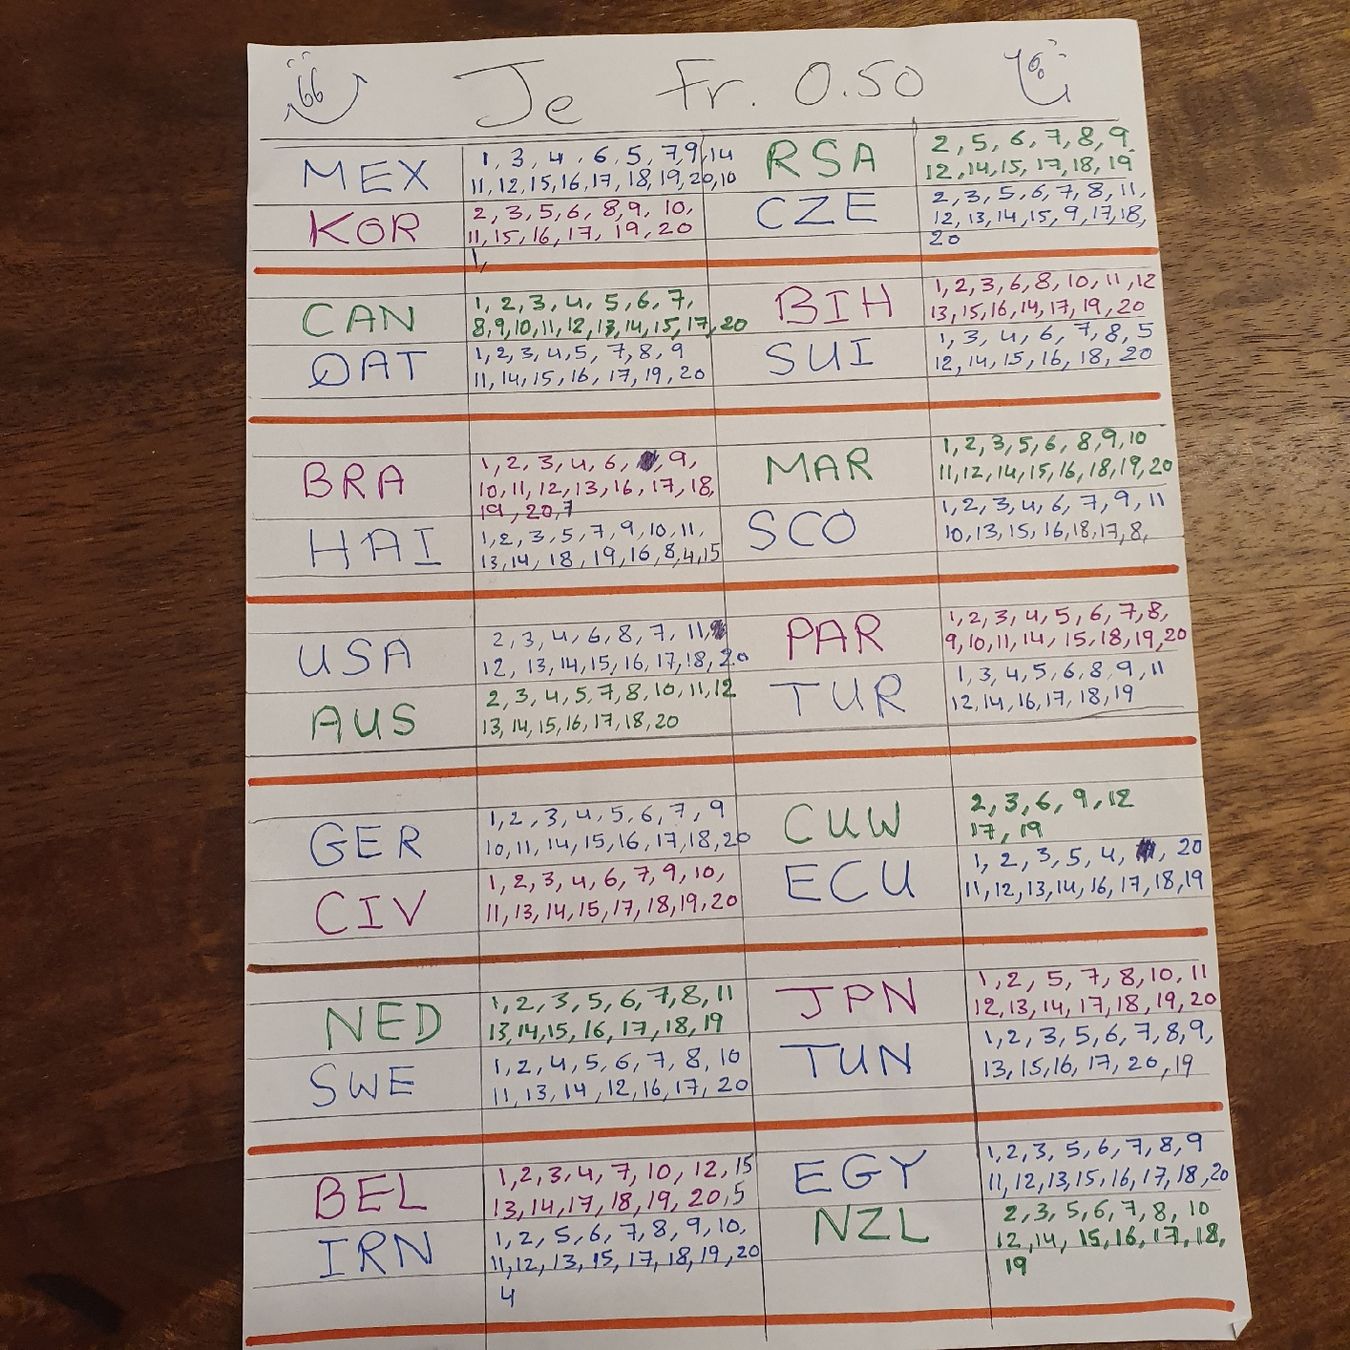 Je Fr. 0.50
MEX
1, 3, 4, 6, 5, 7, 9, 14
11, 12, 15, 16, 17, 18, 19, 20, 10
RSA
2, 5, 6, 7, 8, 9
12, 14, 15, 17, 18, 19
KOR
2, 3, 5, 6, 8, 9, 10,
11, 15, 16, 17, 19, 20
1,
CZE
2, 3, 5, 6, 7, 8, 11,
12, 13, 14, 15, 9, 17, 18,
20
CAN
1, 2, 3, 4, 5, 6, 7,
8, 9, 10, 11, 12, 13, 14, 15, 17, 20
BIH
1, 2, 3, 6, 8, 10, 11, 12
13, 15, 16, 14, 17, 19, 20
QAT
1, 2, 3, 4, 5, 7, 8, 9
11, 14, 15, 16, 17, 19, 20
SUI
1, 3, 4, 6, 7, 8, 5
12, 14, 15, 16, 18, 20
BRA
1, 2, 3, 4, 6, 9,
10, 11, 12, 13, 16, 17, 18,
19, 20, 7
MAR
1, 2, 3, 5, 6, 8, 9, 10
11, 12, 14, 15, 16, 18, 19, 20
HAI
1, 2, 3, 5, 7, 9, 10, 11,
13, 14, 18, 19, 16, 8, 4, 15
SCO
1, 2, 3, 4, 6, 7, 9, 11
10, 13, 15, 16, 18, 17, 8,
USA
2, 3, 4, 6, 8, 7, 11,
12, 13, 14, 15, 16, 17, 18, 20
PAR
1, 2, 3, 4, 5, 6, 7, 8,
9, 10, 11, 14, 15, 18, 19, 20
AUS
2, 3, 4, 5, 7, 8, 10, 11, 12
13, 14, 15, 16, 17, 18, 20
TUR
1, 3, 4, 5, 6, 8, 9, 11
12, 14, 16, 17, 18, 19
GER
1, 2, 3, 4, 5, 6, 7, 9
10, 11, 14, 15, 16, 17, 18, 20
CUW
2, 3, 6, 9, 12
17, 19
CIV
1, 2, 3, 4, 6, 7, 9, 10,
11, 13, 14, 15, 17, 18, 19, 20
ECU
1, 2, 3, 5, 4, 20
11, 12, 13, 14, 16, 17, 18, 19
NED
1, 2, 3, 5, 6, 7, 8, 11
13, 14, 15, 16, 17, 18, 19
JPN
1, 2, 5, 7, 8, 10, 11
12, 13, 14, 17, 18, 19, 20
SWE
1, 2, 4, 5, 6, 7, 8, 10
11, 13, 14, 12, 16, 17, 20
TUN
1, 2, 3, 5, 6, 7, 8, 9,
13, 15, 16, 17, 20, 19
BEL
1, 2, 3, 4, 7, 10, 12, 15
13, 14, 17, 18, 19, 20, 5
EGY
1, 2, 3, 5, 6, 7, 8, 9
11, 12, 13, 15, 16, 17, 18, 20
IRN
1, 2, 5, 6, 7, 8, 9, 10,
11, 12, 13, 15, 17, 18, 19, 20
4
NZL
2, 3, 5, 6, 7, 8, 10
12, 14, 15, 16, 17, 18,
19